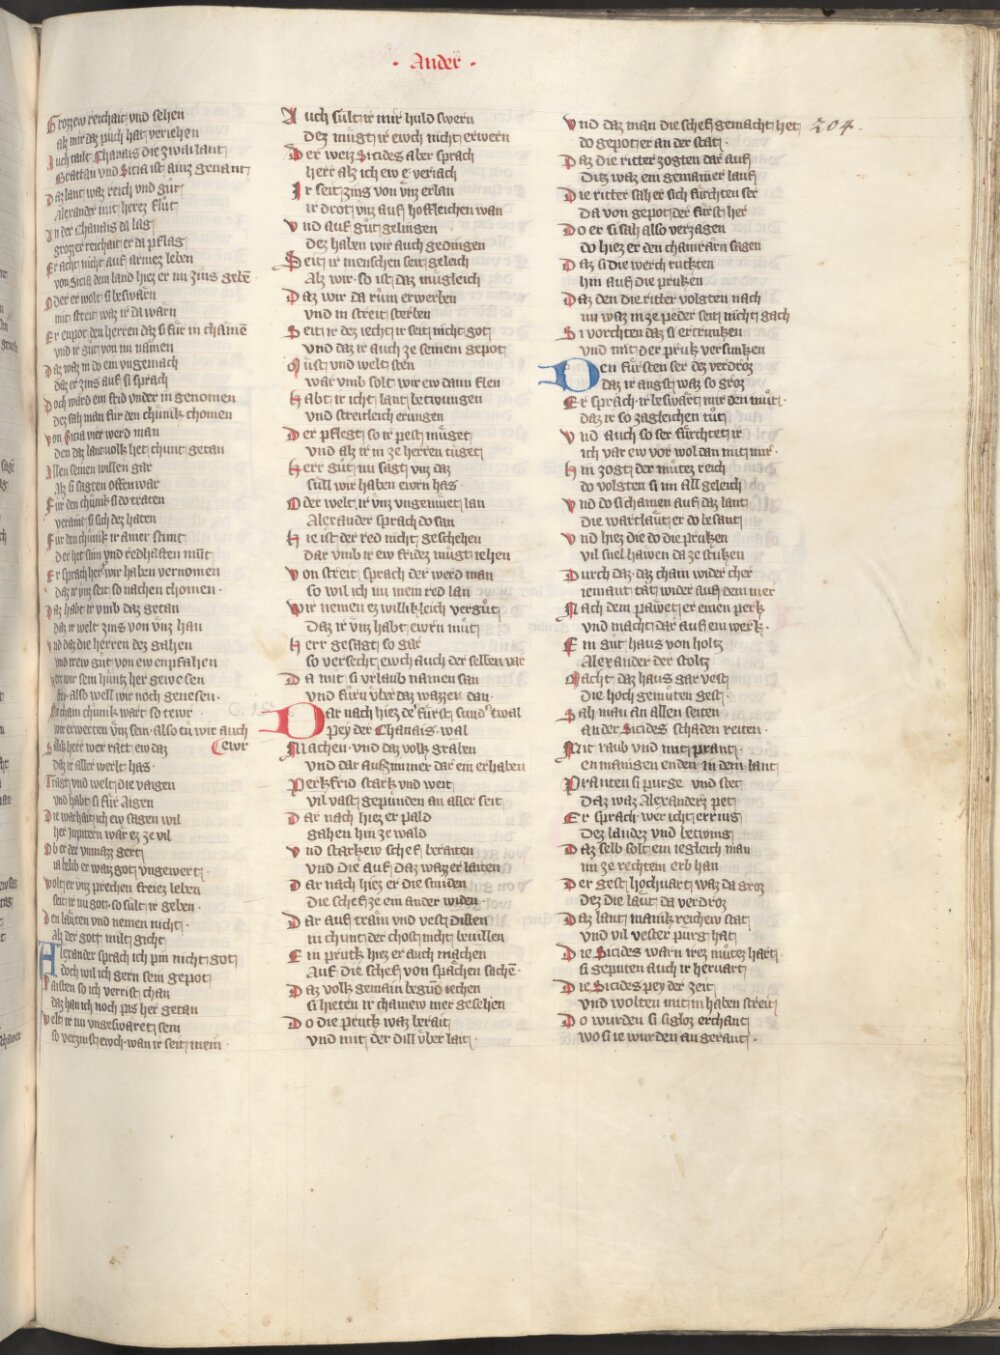 · Ander ·
Grozzew reichait vnd sehen
alz mir daz půch hat veriehen
Auch tailt Chanais die zwai lant
Brattan vnd Sicia ist ainz genant
Daz lant waz reich vnd gůt
Alexander mit herez flůt
An der Chanais da lag
grozzer reichait er da pflag
Er acht nicht auf armez leben
von Sicia dem land hiez er im zins gebē
Oder er wolt si beswarn
mit streit waz ir da warn
Er enpot den herren daz si für in chamē
vnd ir gůt von im nåmen
Daz waz in do ein vngemach
daz er zins auf si sprach
Doch ward ein frid vnder in genomen
dez sah man für den chünik chomen
Von Sicia vier werd man
den daz lantuolk het chunt getan
Allen seinen willen gar
Alz si sagten offenwar
Für den chünik si do traten
Für den chünik ir ainer stunt
der het sinn vnd redhaften můt
Er sprach herr wir haben vernomen
daz ir vnz seit so nachen chomen ·
Daz habt ir vmb daz getan
daz ir welt zins von vnz han
Vnd daz die herren dez gahen
vnd irew gůt von ew enpfahen
also well wir noch genesen ·
chain chünik wart so tewr
wir erwerten vnz sein · also tů wir auch
herr wer ratt ew daz ewr
daz ir aller werlt has ·
Tragt vnd welt die vaigen
vnd habt si für aigen
Die warhait ich ew sagen wil
her Jupitern wår ez ze vil
Ob er der vnmazz gert
ia belib er waz got vngewert ·
Wolt er vnz prechen freiez leben
seit ir nu got · so sült ir geben ·
Den låuten vnd nemen nicht ·
alz der gott milt gicht
Alexander sprach ich pin nicht got
doch wil ich gern sein gepot
Laisten so ich verrist chan
daz han ich noch pis her getan
Welt ir im vngeswaret sein
so verzinst ewch · wan ir seit mein ·
Auch sült ir mir huld swern
dez mügt ir ewch nicht erwern
Der weiz Sicides aber sprach
herr alz ich ew e veriach
Ir seit zins von vnz erlan
ir drot vnz auf hoffleichen wan
Vnd auf gůt gelingen
dez haben wir auch gedingen
Seit ir menschen seit geleich
Alz wir · so ist daz mügleich
Daz wir da rům erwerben
vnd in streit sterben
Seit ir dez iecht ir seit nicht got
vnd daz ir auch ze seinem gepot
Müst vnd welt sten
war vmb solt wir ew dann flen
Habt ir icht lant betwungen
vnd streitleich erungen
Der pflegt so ir pest müget
vnd alz ir in ze herren tüget
Herr gůt nu sagt vnz daz
süll wir haben ewrn has ·
Oder welt ir vnz vngemüet lan
Alexander sprach do san
Hie ist der red nicht geschehen
dar vmb ir ew fridez mügt iehen
Von streit sprach der werd man
so wil ich nu mein red lan
Wir nemen ez willikleich vergůt
Daz ir vnz habt ewrn můt
Herr gesagt so gar
so versecht ewch auch der selben var
Da mit si vrlaub namen san
vnd fůrn vber daz wazzer dan ·
Dar nach hiez der fürst sunder twal
Pey der Chanais · wal
Machen · vnd daz volk graben
vnd dar auf immer dar ein erhaben
Perkfrid stark vnd weit
vil vast gepunden an aller seit
Dar nach hiez er pald
gahen hin ze wald
Vnd starkew schef beraiten
vnd die auf daz wazzer laiten
Dar nach hiez er die smiden
die schef ze ein ander widen ·
Dar auf tram vnd vest dillen
in chunt der chost nicht beuillen
Ein prukk hiez er auch machen
Auf die schef von spåchen sachē ·
Daz volk gemain begūd iechen
si hieten ir chainew mer gesehen
Do die prukk waz berait
vnd mit der dill vber lait ·
Vnd daz man die schef gemacht het 204 ·
do gepot er an der stat ·
Daz die ritter zogten dar auf
Ditz waz ein gemainer lauf
Die ritter sah er sich fürchten ser
Da von gepot der fürst her
Do er si sah also verzagen
do hiez er den chamrårn sagen
Daz si die werch ruckten
hin auf die prukken
Daz den die ritter volgten nach
nu waz in ze peder seit nicht gach
Si vorchten daz si ertrunken
vnd mit der pruk versunken
Den fürsten ser dez verdroz
daz ir angst waz so groz
Er sprach · ir beswårt mir den můt ·
daz ir so zagleichen tůt
Vnd auch so ser fürchtet ir
ich var ew vor wol dan mit mir ·
Hin zogt der můtez reich
do volgten si im all geleich
Vnd do si chamen auf daz lant
die wartlaůt er do besant
Vnd hiez die do die prukken
vil snel hawen da ze stukken
Durch daz · daz cham wider cher
iemant tåt wider auf dem mer
Nach dem pawet er einen perk
vnd macht dar auf ein werk ·
Ein gůt haus von holtz
Alexander der stoltz
Macht daz haus gar vest
die hoch gemůten gest ·
Sah man an allen seiten
an der Sicides schaden reiten ·
Mit raub vnd mit prant ·
en manigen enden in dem lant
Pranten si purge vnd stet
Daz waz Alexanderz pet
Er sprach · wer icht erring
Dez landez vnd betwing
Daz selb solt ein iegleich man
im ze rechtem erb han
Der gest hochuart waz da groz
dez die laůt da verdroz
Daz lant manik reichew stat
vnd vil vester pürg hat
Die Sicides warn irez můtez hart ·
si geputen auch ir heruart
Die Sicides pey der zeit
vnd wolten mit in haben streit
Do wurden si sigloz erchant
wo si ie wurden an gerant ·